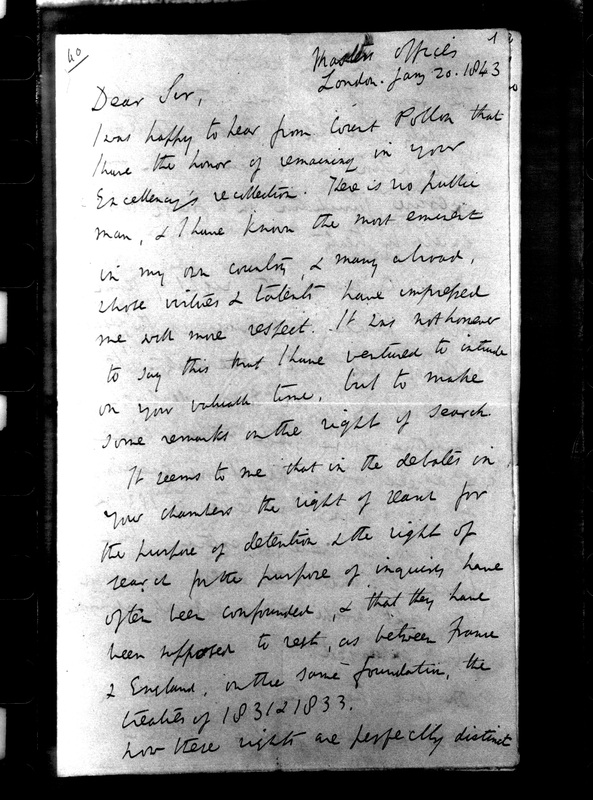 40
1
Masters Offices
London. Jany 20. 1843
Dear Sir,
I was happy to hear from Count Pollon that
I have the honor of remaining in your
Excellency's recollection. There is no public
man, & I have known the most eminent
in my own country, & many abroad,
whose virtues & talents have impressed
me with more respect. It was not however
to say this that I have ventured to intrude
on your valuable time, but to make
some remarks on the right of search
It seems to me that in the debates in
your chambers the right of search for
the purpose of detention & the right of
search for the purpose of inquiry have
often been confounded, & that they have
been supposed to rest, as between France
& England, on the same foundation, the
treaties of 1831 & 1833.
Now these rights are perfectly distinct